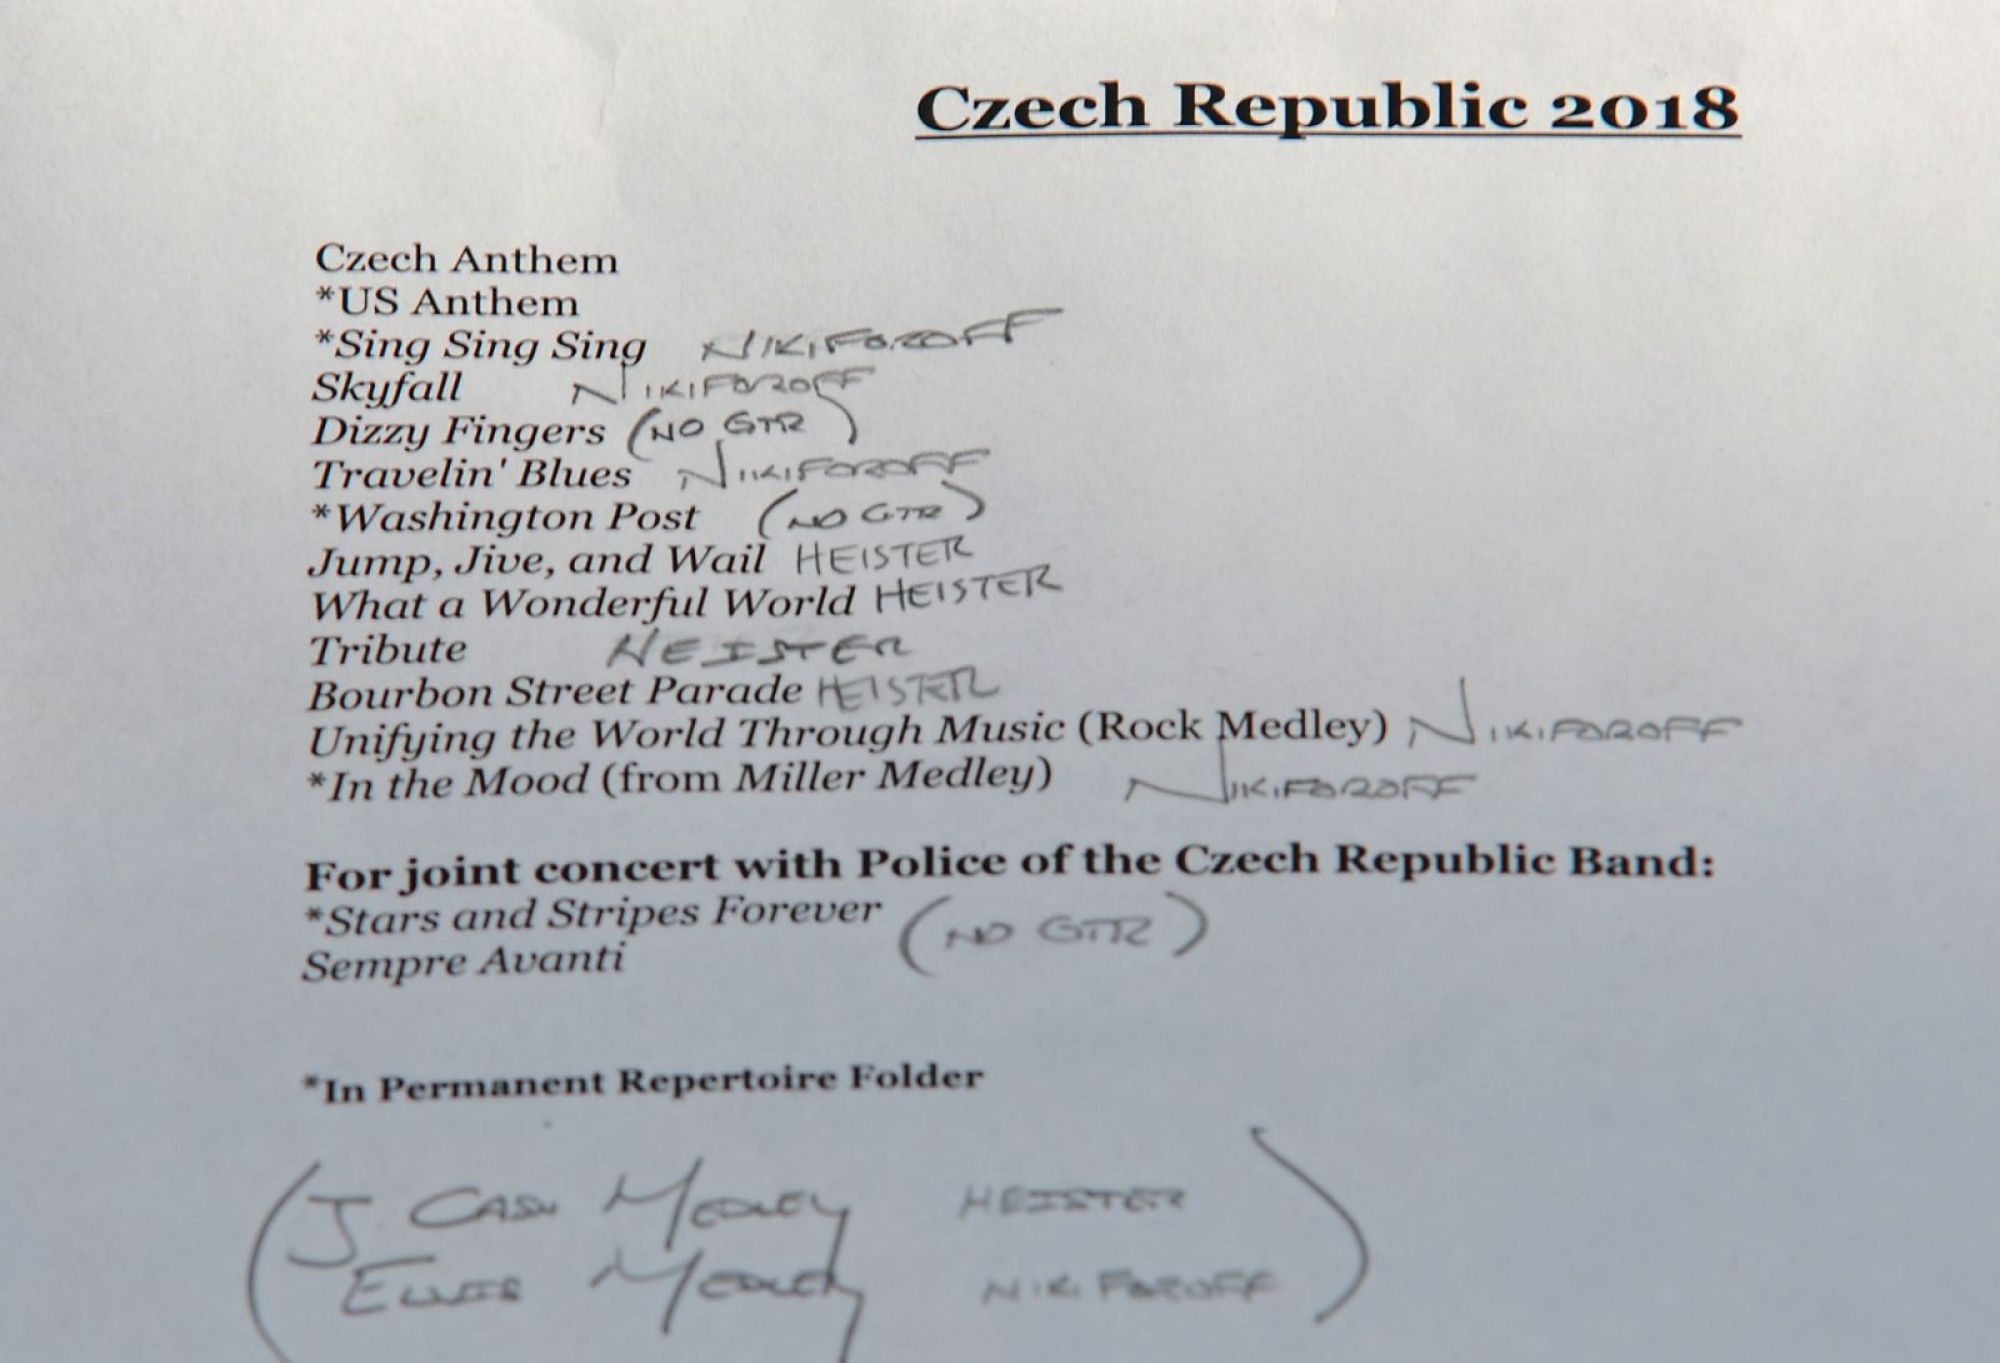 Czech Republic 2018
Czech Anthem
*US Anthem
*Sing Sing Sing NIKIFOROFF
Skyfall NIKIFOROFF
Dizzy Fingers (NO GTR)
Travelin' Blues NIKIFOROFF
*Washington Post (NO GTR)
Jump, Jive, and Wail HEISTER
What a Wonderful World HEISTER
Tribute HEISTER
Bourbon Street Parade HEISTER
Unifying the World Through Music (Rock Medley) NIKIFOROFF
*In the Mood (from Miller Medley) NIKIFOROFF
For joint concert with Police of the Czech Republic Band:
*Stars and Stripes Forever (NO GTR)
Sempre Avanti
*In Permanent Repertoire Folder
(J CASH MEDLEY HEISTER)
MEDLEY NIKIFOROFF